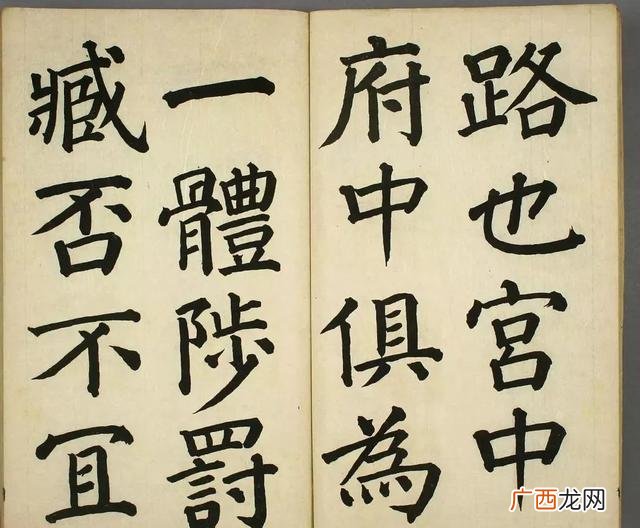 路也宮中
府中俱為
一體陟罰
臧否不宜
广西龙网